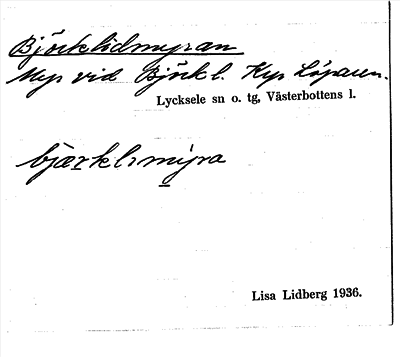 Björklidmyran
Myr vid Björkl.
Lycksele sn o. tg, Västerbottens l.
bjærklimyra
Lisa Lidberg 1936.